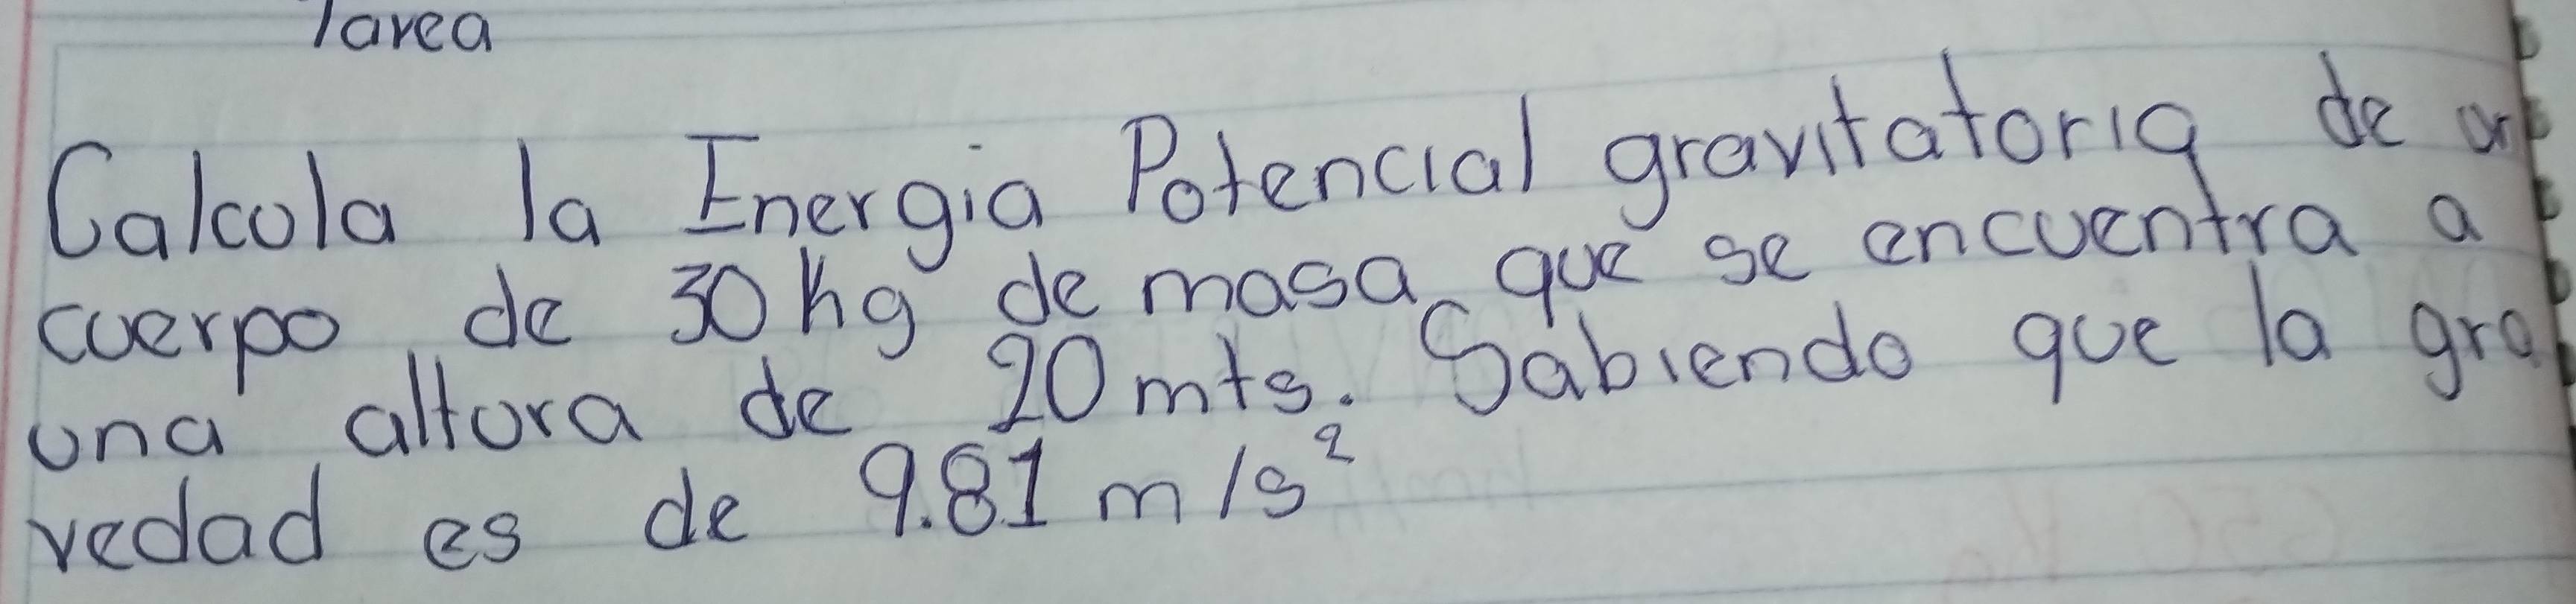 Tarea
Calcula la Energia Potencial gravitatoria de un
cuerpo de 30 Kg de masa que se encuentra a
una altura de 20 mts. Sabiendo que la gra
vedad es de 9.81 m/s²